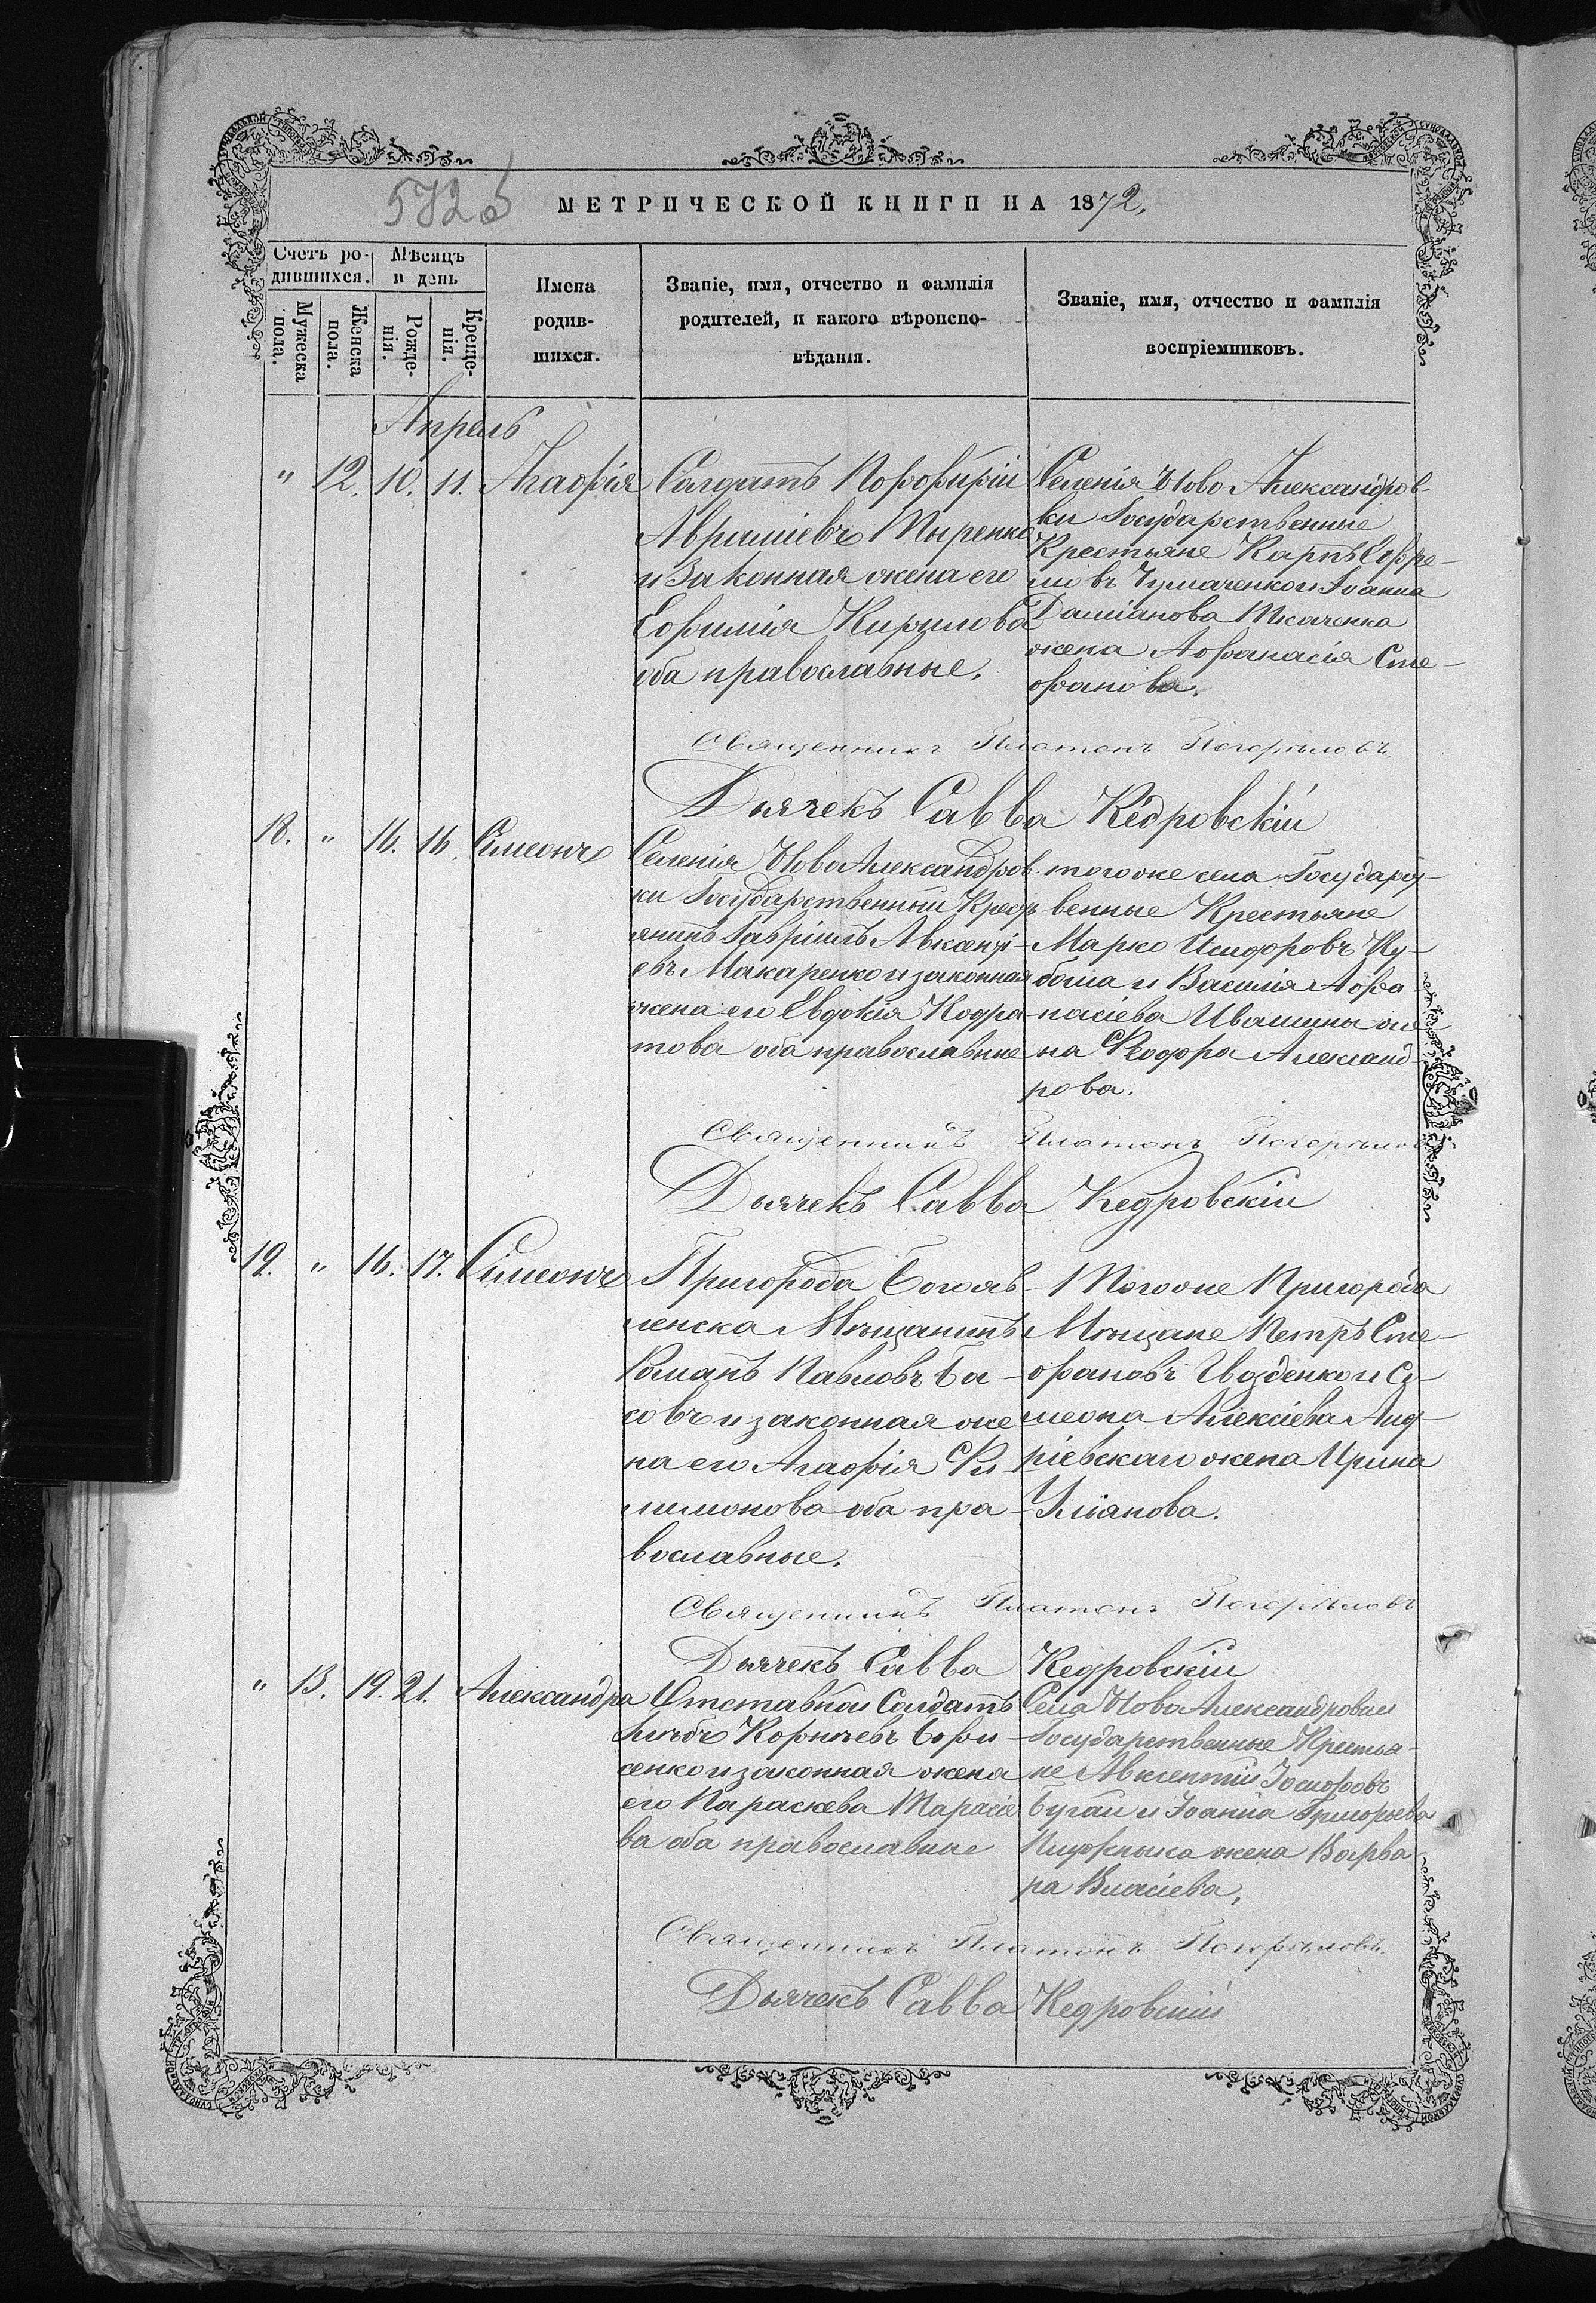 572об
МЕТРИЧЕСКОЙ КНИГИ НА 1872.
Счетъ ро-
дившихся.
Мѣсяцъ
и день
Мужеска
пола.
Женска
пола.
Рожде-
нія.
Креще-
нія.
Имена
родив-
шихся.
Званіе, имя, отчество и фамилія
родителей, и какого вѣроиспо-
вѣданія.
Званіе, имя, отчество и фамилія
воспріемниковъ.
Апрель
" 12. 10. 11. Агафія
Солдатъ Порфирій
Аврамiевъ
и Законная жена его
Ефимія Кирилова
оба православные.
Селенія Ново Александров-
ки Государственные
Крестьяне Карпъ Ефре-
мовъ Чумаченко и Іоанна
Даміанова Ткаченка
жена Афанасія Сте-
фанова.
Священникъ Платонъ Погорѣловъ
Дьячекъ Савва Кедровскій
18. " 16. 16. Симеонъ
Селенія Ново Александров-
ки Государственный Крест
янинъ Гавріилъ Авксенті-
евъ Макаренко и законная
жена его Евдокія Кодра-
това оба православные
тогоже села Государст-
венные Крестьяне
Марко Исидоровъ Ку-
баша и Василія Афа-
насіева Ивашины же-
на Феодора Александ-
рова.
Священникъ Платонъ Погорѣловъ
Дьячекъ Савва Кедровскій
19. " 16. 17. Симеонъ
Пригорода Богояв-
ленска Мѣщанинъ
Романъ Павловъ Ба-
совъ и законная же
на его Агафія Фи-
лимонова оба пра-
вославные.
Тогоже Пригорода
Мѣщане Петръ Сте-
фановъ Гвозденко и Си
меона Алексіева Анд-
ріевскаго жена Ирина
Уліанова.
Священникъ Платонъ Погорѣловъ
Дьячекъ Савва Кедровскій
" 13. 19. 21. Александра
Отставной Солдатъ
Глѣбъ Корніевъ
и законная жена
его Параскева Тарасіе
ва оба православные
Села Ново Александровки
Государственные Крестья-
не Авксентій Іосифовъ
Бугай и Іоанна Григорьева
жена Варва
ра Власіева,
Священникъ Платонъ Погорѣловъ
Дьячекъ Савва Кедровскій